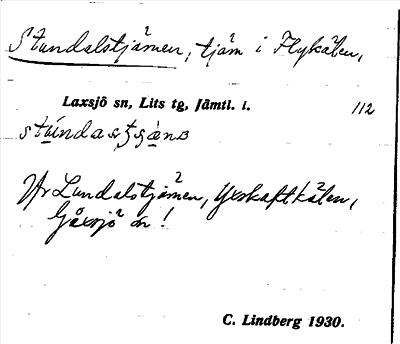 Stundalstjärnen, tjärn i Flykälen,
Laxsjö sn, Lits tg, Jämtl. l.
112
Jfr Lundalstjärnen, Yxskaftkälen,
Gåxsjö sn!
C. Lindberg 1930.